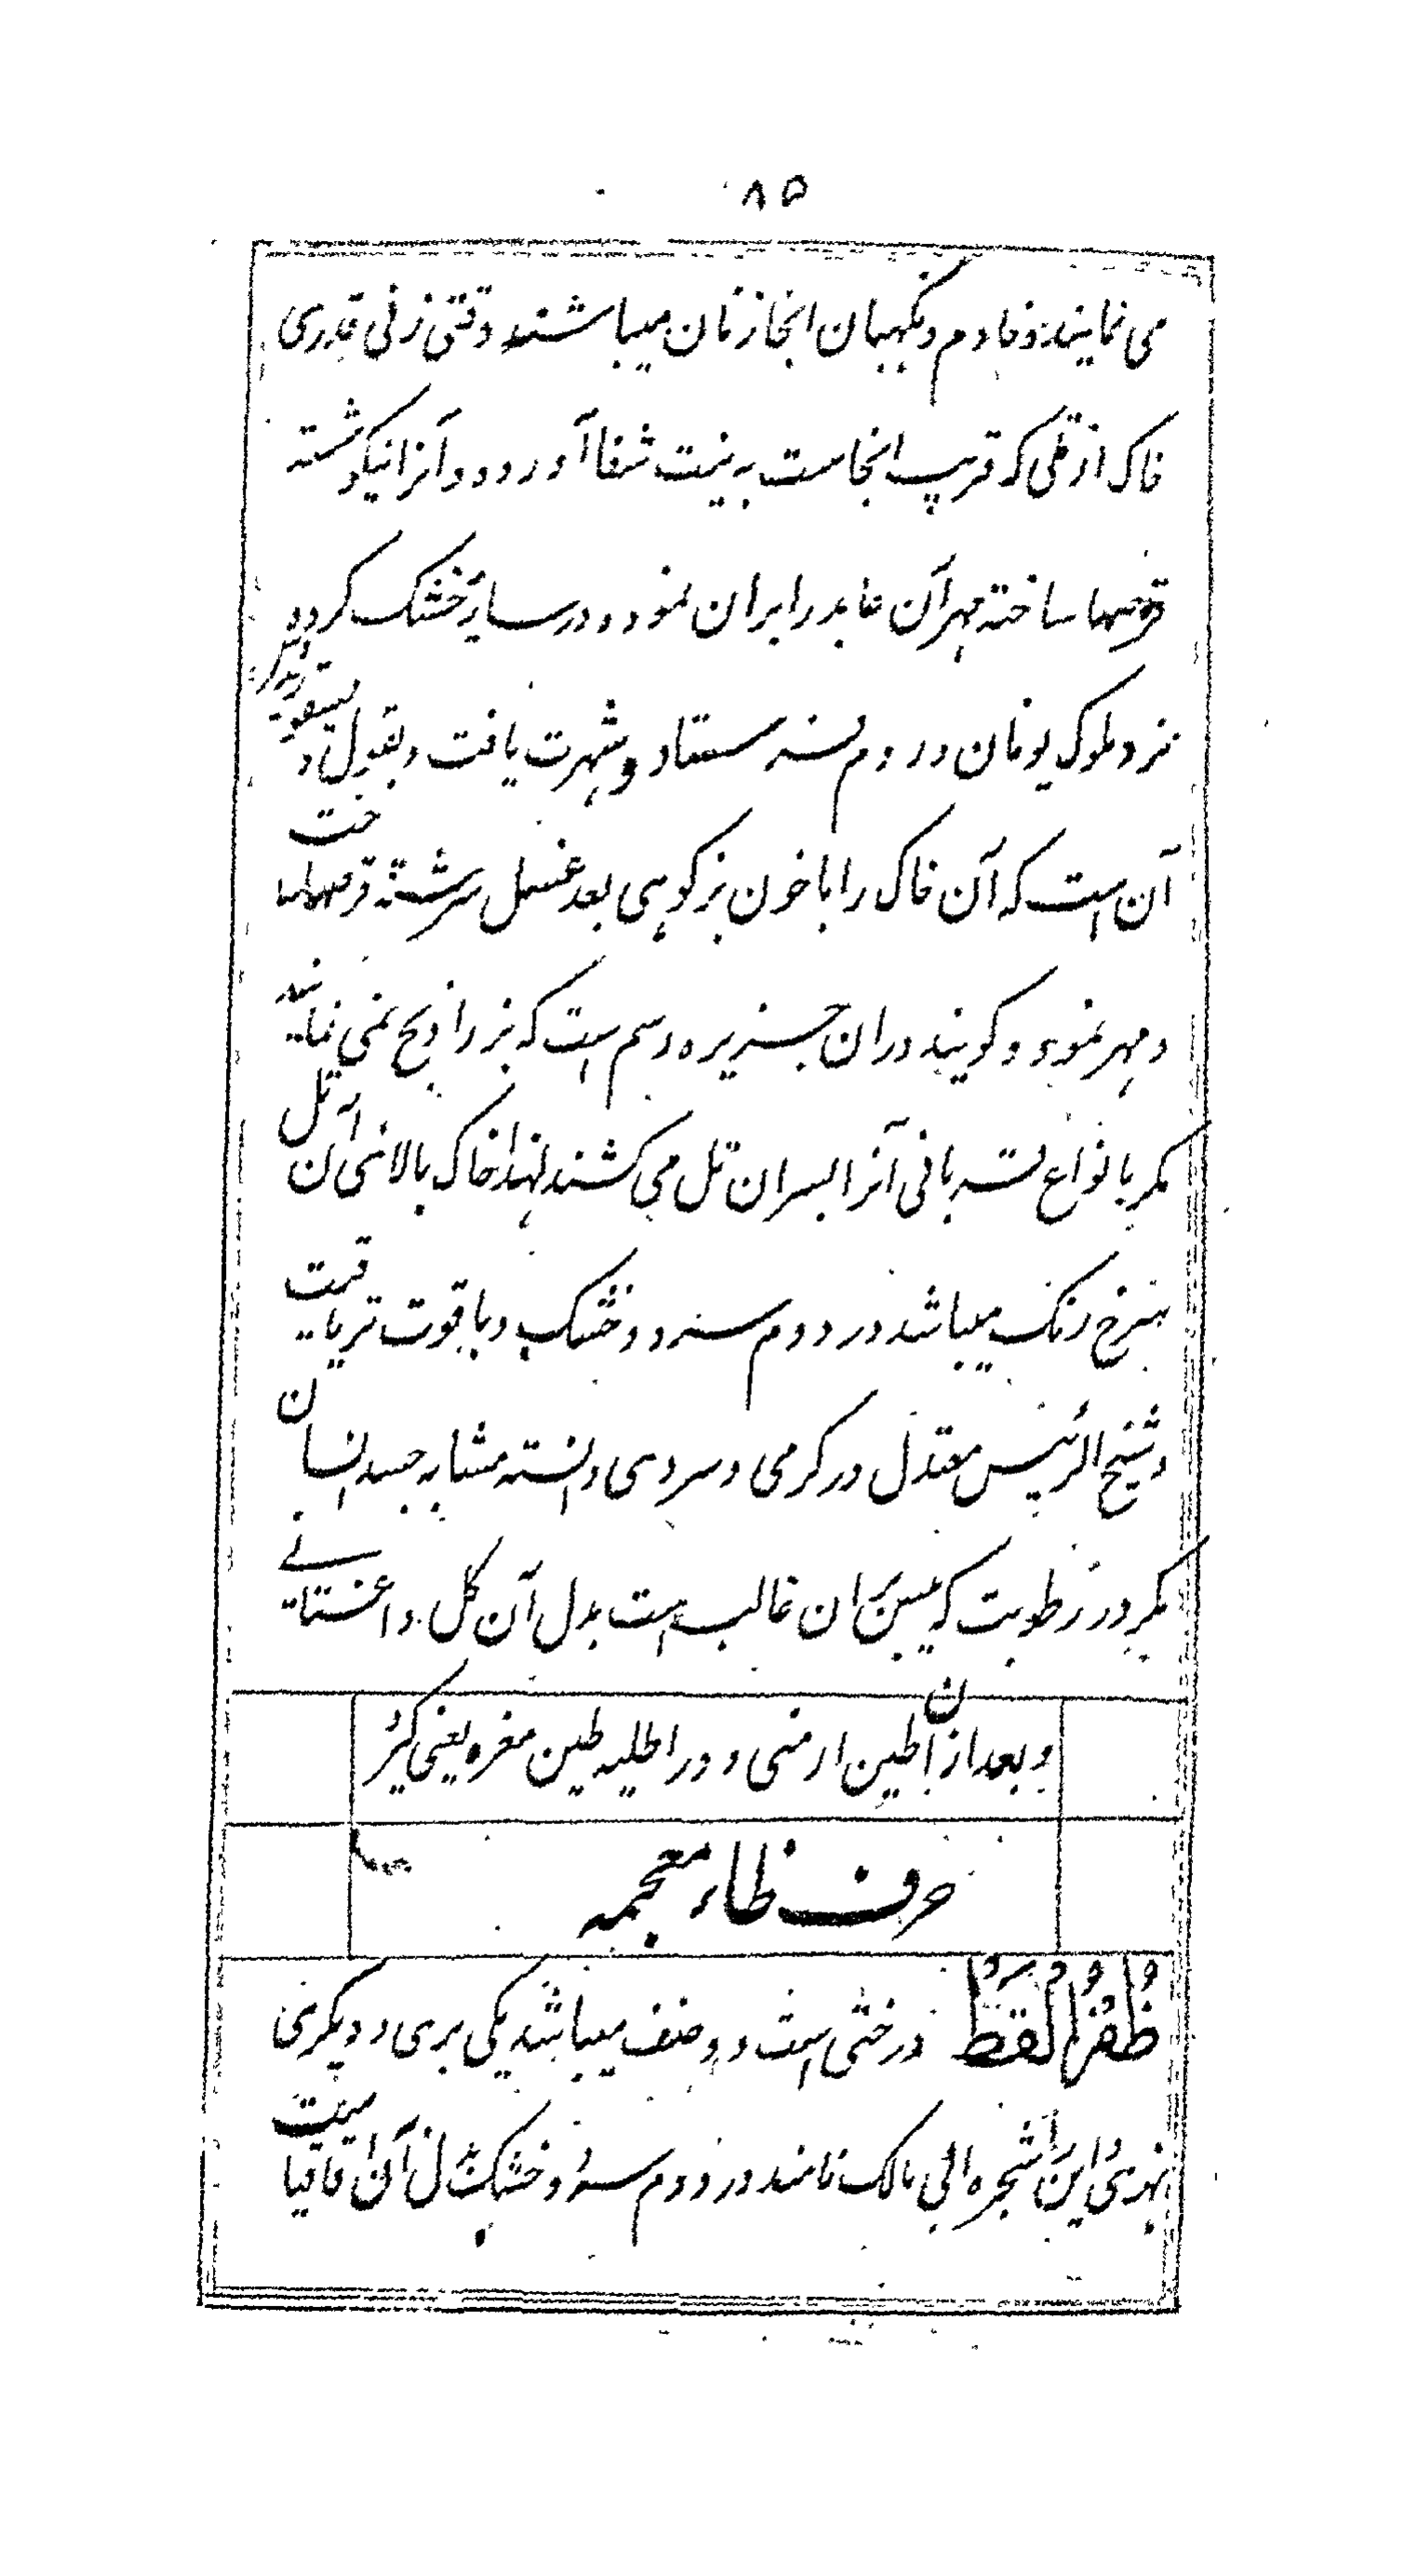 ۸۵
می نمایند و خادم و نگهبان انجا زنان میباشند وقتی زنی قدری
خاک از تلی که قریب انجاست به نیت شفا آورده و آنرا نیکو شسته
قرصها ساخته مهر آن عابد را بران نموده در سایه خشک کرده
نزد ملوک یونان و روم فرستاد و شهرت یافت و بقول دیسقوریدوس
آن است که آن خاک را با خون بز کوهی بعد غسل سرشته قرصها ساخت
و مهر نموده و کویند دران جزیره رسم است که بز را ذبح نمی نمایند
مکر بانواع آنرا بسران تل می کشند لهذا خاک بالای آن تل
سرخ رنک میباشد در دوم سرد و خشک و با قوت تریاقیت
و شیخ الرئیس معتدل در کرمی و سردی دانسته مشابه جسد انسان
مکر در رطوبت که یبس ان غالب است بدل آن کل داغستانی
و بعد ازان طین ارمنی و در اطلیه طین مغره یعنی کیرو
حرف ظاء معجمه
ظُفْرُ القِطّ درختی است دو صنف میباشد یکی بری و دیکری
نهری این را شجره ابی مالک نامند در دوم سرد و خشک بدل آن اقاقیا